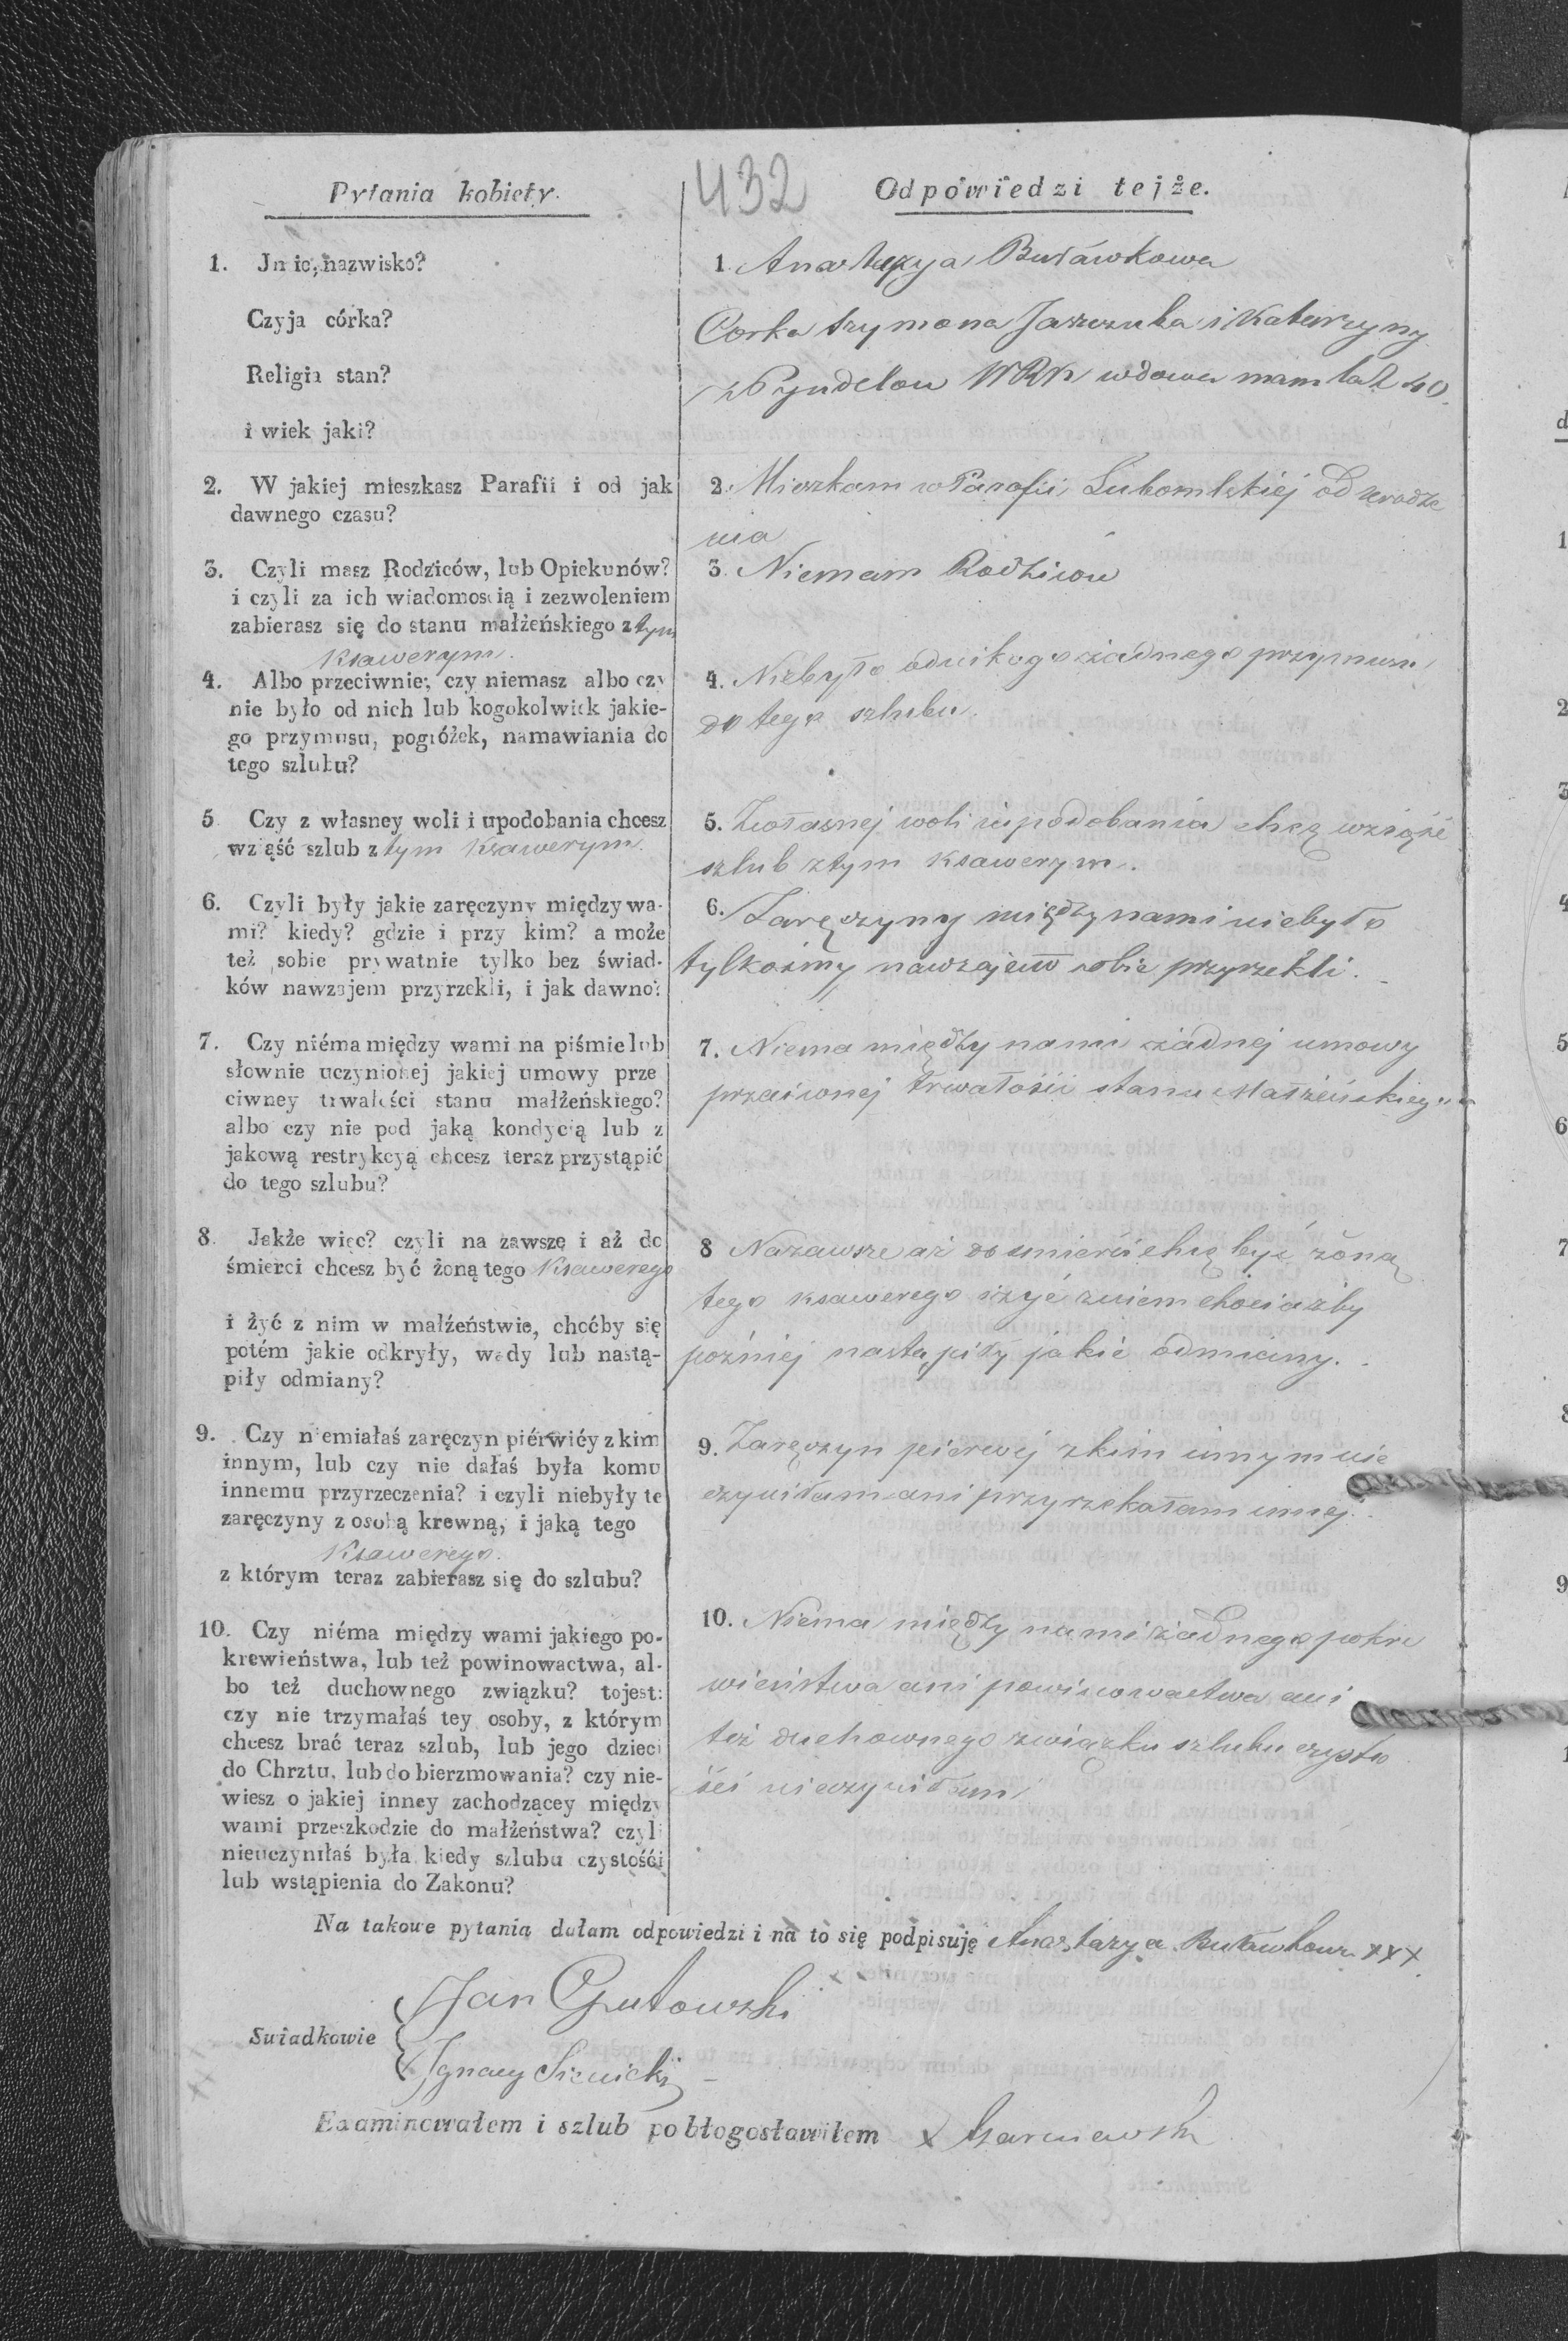 432
Pytania kobiety.
Odpowiedzi tejże.
1. Jmie, nazwisko?
Czyja córka?
Religia stan?
i wiek jaki?
1. Anastazya Buławkowa
Corka Szymona Jaszczuka i Katarzyny
z Pyndelow WRK wdowa mam lat 40.
2. W jakiej mieszkasz Parafii i od jak
dawnego czasu?
2. Mieszkam w Parafii Lubomlskiej od urodze
nia
3. Czyli masz Rodziców, lub Opiekunów?
i czyli za ich wiadomością i zezwoleniem
zabierasz się do stanu małżeńskiego z tym
Ksawerym.
3. Niemam Rodziców
4. Albo przeciwnie, czy niemasz albo czy
nie było od nich lub kogokolwiek jakie-
go przymusu, pogróżek, namawiania do
tego szlubu?
4. Niebyło odnikogo żadnego przymusu
do tego szlubu.
5 Czy z własney woli i upodobania chcesz
wziąść szlub z tym Ksawerym.
5. Zwłasnej woli i upodobania chcę wziąść
szlub ztym Ksawerym.
6. Czyli były jakie zaręczyny między wa-
mi? kiedy? gdzie i przy kim? a może
też sobie prywatnie tylko bez świad-
ków nawzajem przyrzekli, i jak dawno?
6. Zaręczyny między nami niebyło
tylkośmy nawzajem sobie przyrzekli.
7. Czy niéma między wami na piśmie lub
słownie uczynionej jakiej umowy prze
ciwney trwałości stanu małżeńskiego?
albo czy nie pod jaką kondycią lub z
jakową restrykcyą chcesz teraz przystąpić
do tego szlubu?
7. Niema między nami żadnej umowy
przeciwnej trwałości stanu Małżeńskiego
8. Jakże więc? czyli na zawszę i aż do
śmierci chcesz być żoną tego Ksawerego
i żyć z nim w małżeństwie, choćby się
potém jakie odkryły, wady lub nastą-
piły odmiany?
8 Nazawsze aż do smierci chcę być żoną
tego Ksawerego i żyć zniem chociażby
poźniej nastąpiły jakie odmiany.
9. Czy niemiałaś zaręczyn piérwiéy z kim
innym, lub czy nie dałaś była komu
innemu przyrzeczenia? i czyli niebyły te
zaręczyny z osobą krewną, i jaką tego
Ksawerego.
z którym teraz zabierasz się do szlubu?
9. Zaręczyn pierwej zkim innym nie
czyniłam ani przyrzekałam innej.
10. Czy niéma między wami jakiego po-
krewieństwa, lub też powinowactwa, al-
bo też duchownego związku? tojest:
czy nie trzymałaś tey osoby, z którym
chcesz brać teraz szlub, lub jego dzieci
do Chrztu, lub do bierzmowania? czy nie-
wiesz o jakiej inney zachodzącey między
wami przeszkodzie do małżeństwa? czyli
nieuczyniłaś była kiedy szlubu czystości
lub wstąpienia do Zakonu?
10. Niema między nami żadnego pokre
wieństwa ani powinowactwa ani
też duchownego związku szlubu czysto
ści nieczyniłam
Na takowe pytania dałam odpowiedzi i na to się podpisuję Anastazya Buławkowa xxx
Jan Gutowski
Swiadkowie
Ignacy Sienicki
Examinowałem i szlub pobłogosławiłem x